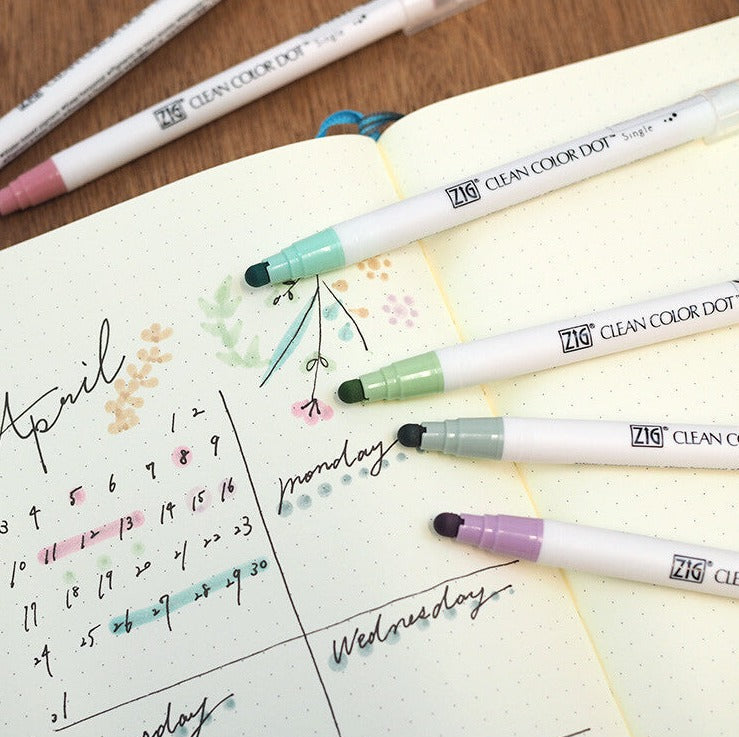 ZIG® CLEAN COLOR DOT™ Single
ZIG® CLEAN COLOR DOT™ Single
ZIG® CLEAN COLOR DOT™
ZIG® CLEAN CO
ZIG® CLE
April
1 2
3 4 5 6 7 8 9
10 11 12 13 14 15 16
17 18 19 20 21 22 23
24 25 26 27 28 29 30
monday
Wednesday